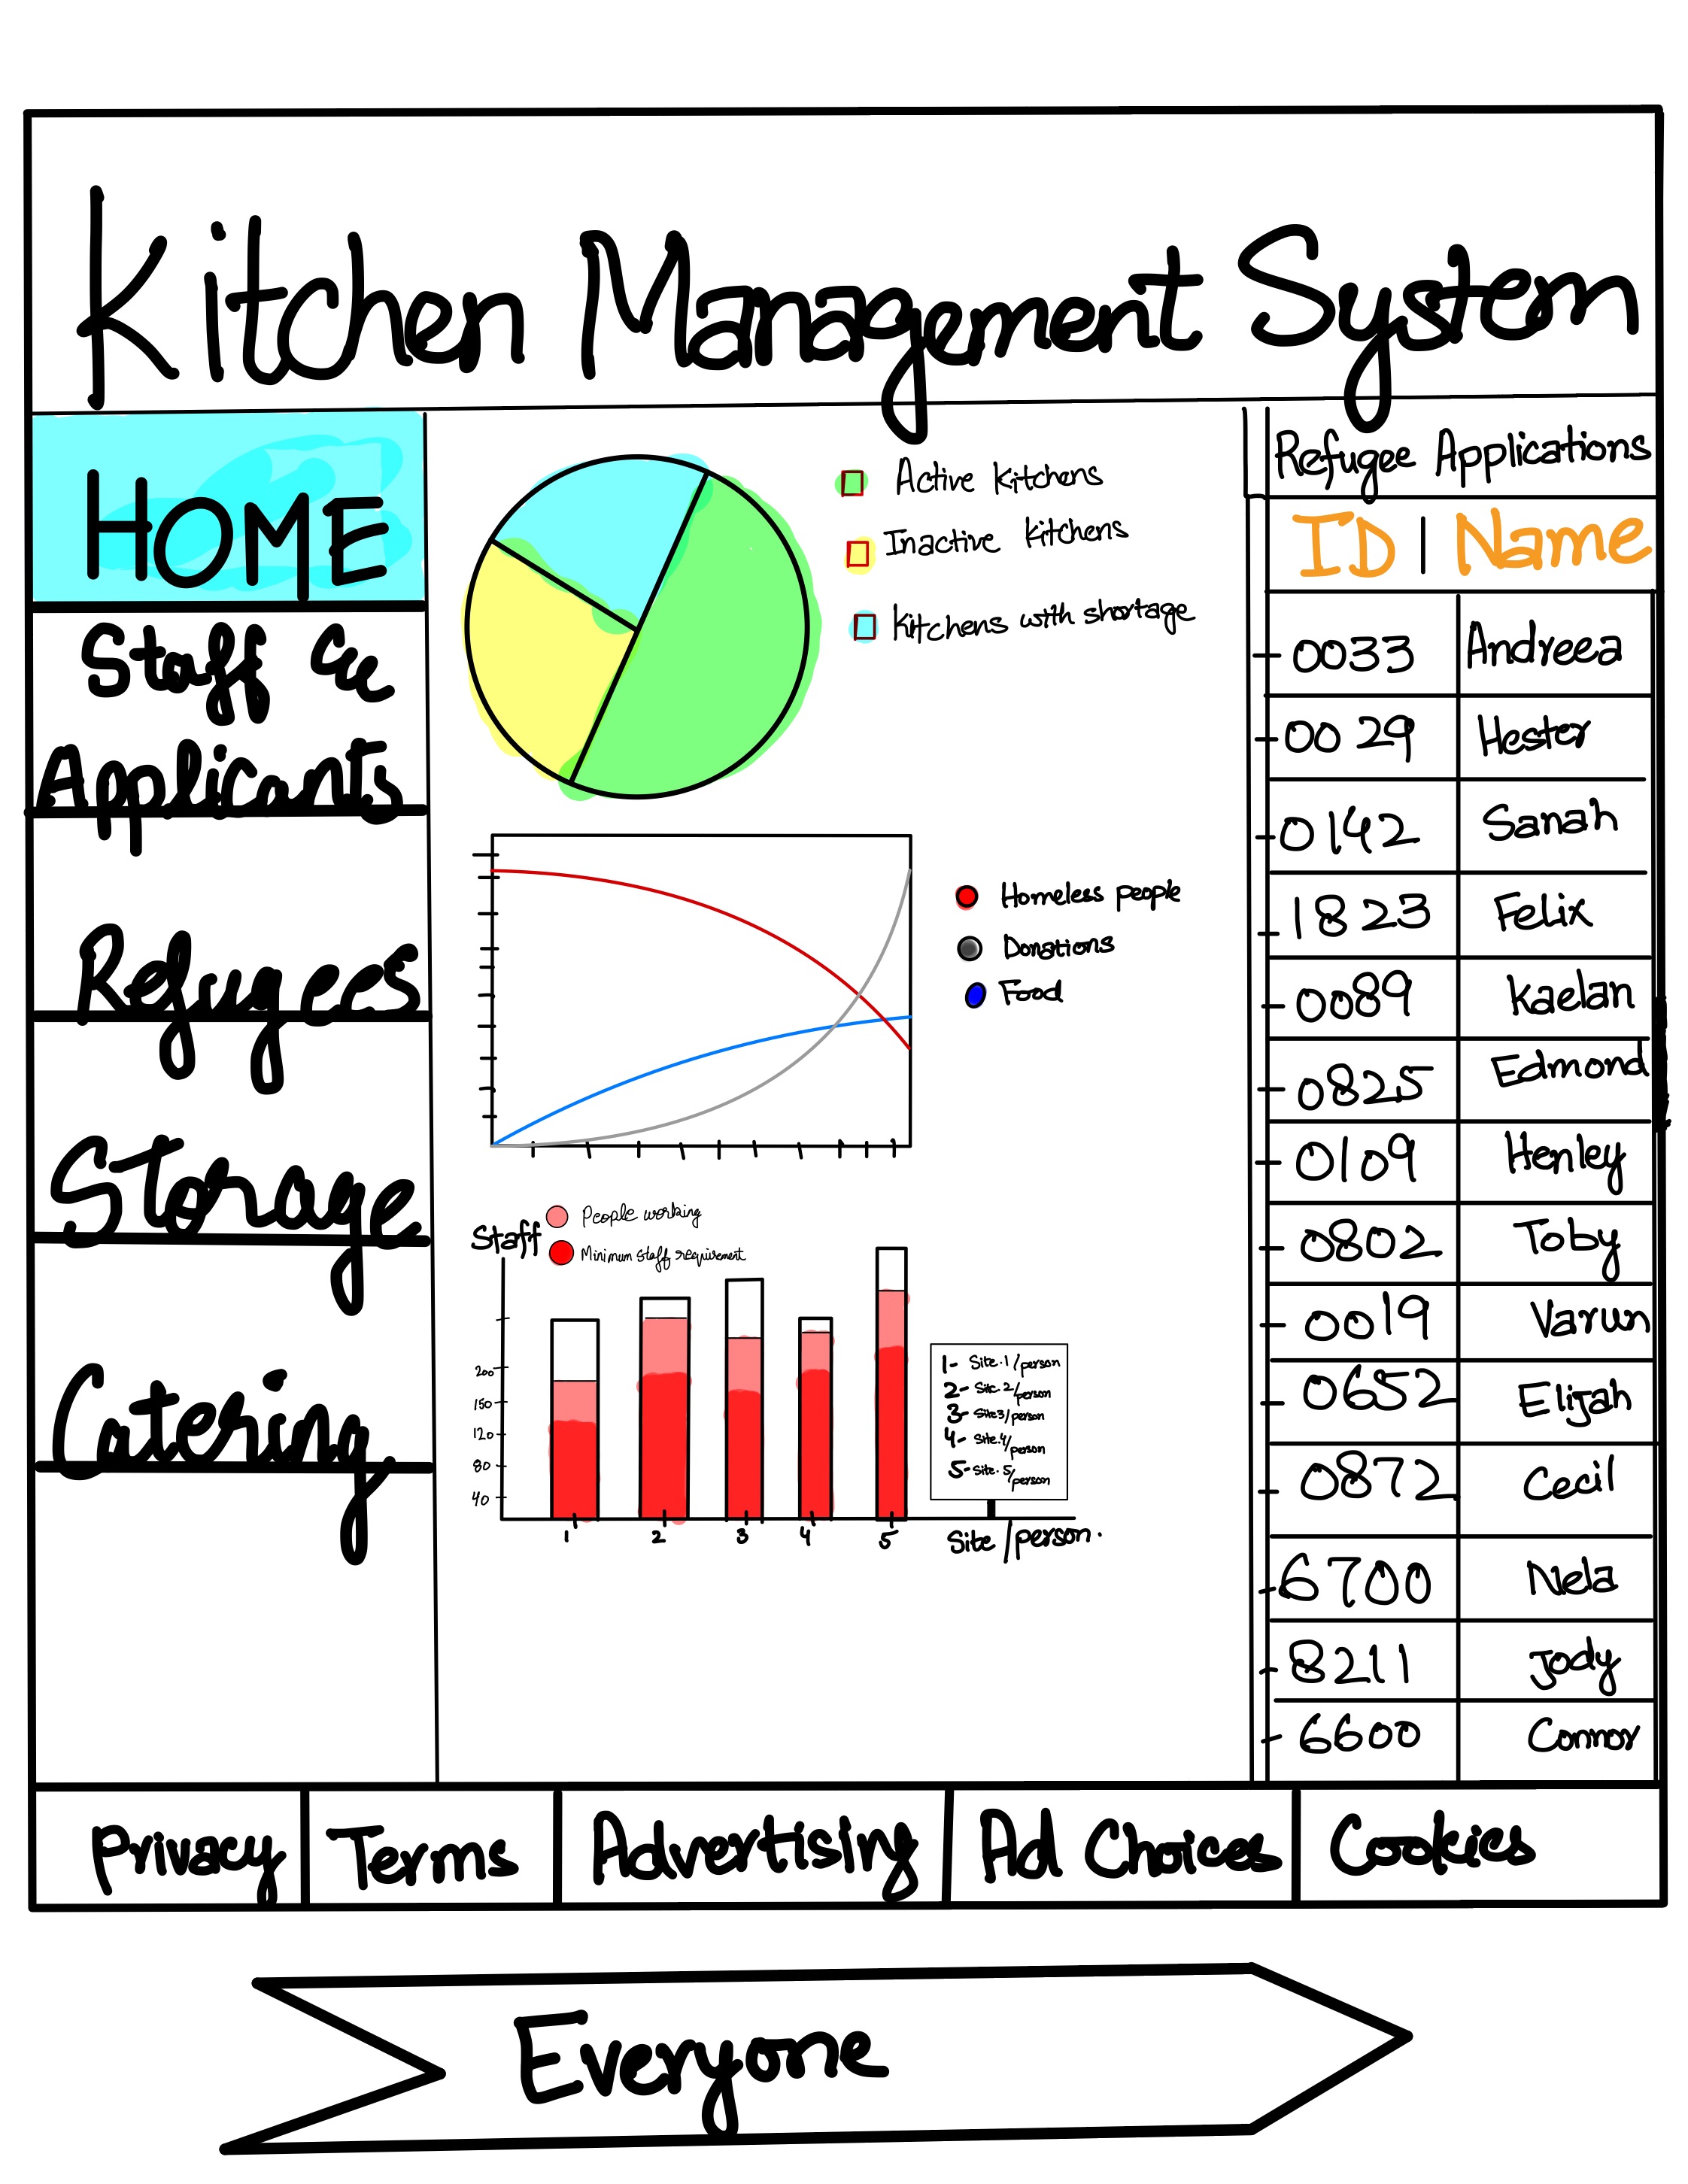 Kitchen Management System
HOME
Staff &
Applicants
Refugees
Storage
Catering
Active Kitchens
Inactive Kitchens
Kitchens with shortage
Homeless people
Donations
Food
Staff
People working
Minimum staff requirement
200
150
120
80
40
1 2 3 4 5
Site/person.
1- Site.1/person
2- Site 2/person
3- Site3/person
4- Site.4/person
5- Site.5/person
Refugee Applications
ID | Name
0033 Andreea
0029 Hester
0142 Sanah
1823 Felix
0089 Kaelan
0825 Edmond
0109 Henley
0802 Toby
0019 Varun
0652 Elijah
0872 Cecil
6700 Nela
8211 Jody
6600 Connor
Privacy Terms Advertising Ad Choices Cookies
Everyone